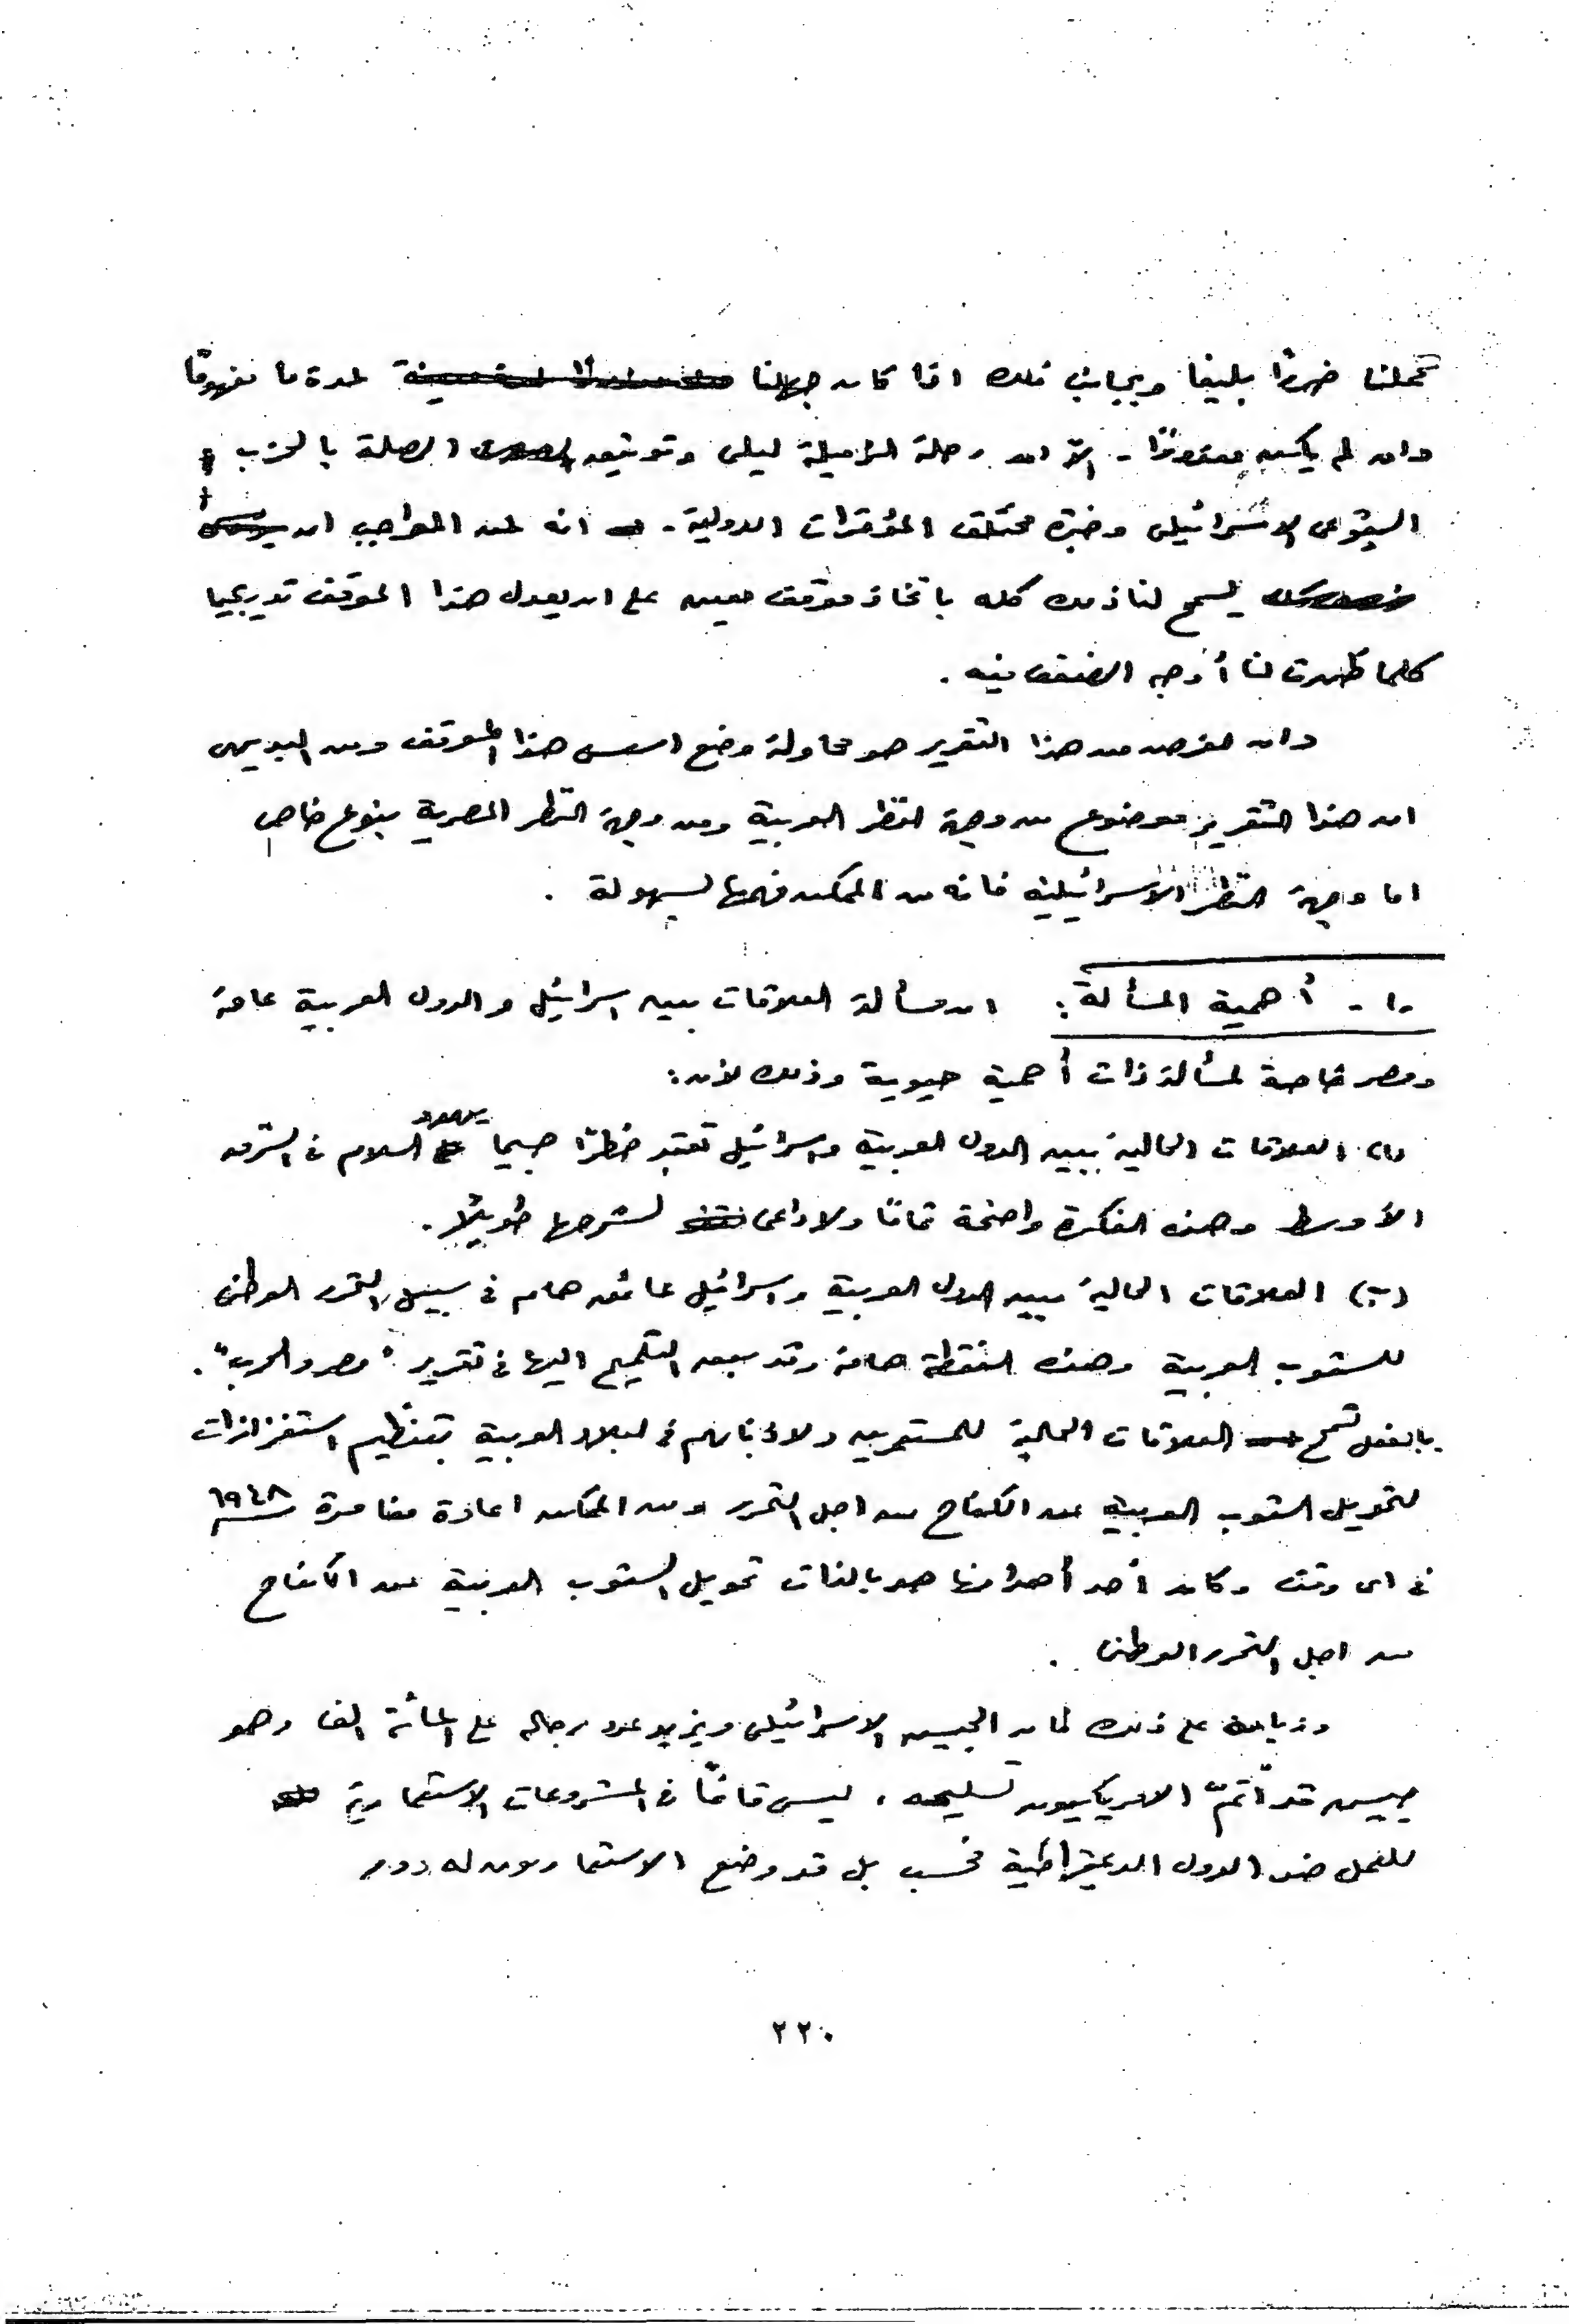 تحملنا ضررًا بليغا وبجانب ذلك اذا كان جهلنا لمدة ما مفهومًا
وان لم يكن معذورًا - الاّ ان رحلة الزميلة ليلى وتوثيق الصلة بالحزب
الشيوعى الاسرائيلى وخبرة مختلف المؤتمرات الدولية - انه لمن الواجب ان
يسمح لنا ذلك كله باتخاذ موقف معين على ان يعدل هذا الموقف تدريجيا
كلما ظهرت لنا أوجه الضعف فيه .
وان الغرض من هذا التقرير هو محاولة وضع اسس هذا الموقف ومن البديهى
ان هذا التقرير موضوع من وجهة النظر العربية ومن وجهة النظر المصرية بنوع خاص
اما وجهة النظر الاسرائيلية فانه من الممكن فهمها بسهولة .
-١- أهمية المسألة : ان مسألة العلاقات بين اسرائيل والدول العربية عامة
ومصر خاصة لمسألة ذات أهمية حيوية وذلك لأن :
(١) العلاقات الحالية بين الدول العربية واسرائيل تعتبر خطرًا جسيما يهدد السلام فى الشرق
الأوسط وهذه الفكرة واضحة تمامًا ولا داعى لشرحها طويلًا .
(٢) العلاقات الحالية بين الدول العربية واسرائيل عائق هام فى سبيل التحرر الوطنى
للشعوب العربية وهذه النقطة هامة وقد سبق التلميح اليها فى تقرير "مصر والحرب" .
بالفعل تسمح العلاقات الحالية للمستعمرين ولاذنابهم فى البلاد العربية بتنظيم استفزازات
لتحويل الشعوب العربية عن الكفاح من اجل التحرر ومن الممكن اعادة مغامرة ١٩٤٨
فى اى وقت وكان أحد أهدافها هو بالذات تحويل الشعوب العربية عن الكفاح
من اجل التحرر الوطنى .
وزيادة على ذلك فان الجيش الاسرائيلى ويزيد عدد رجاله على المائة الف وهو
جيش قد أتمّ الامريكيون تسليحه ، ليس قائمًا فى المشروعات الاستعمارية
للعمل ضد الدول الديمقراطية فحسب بل قد وضع الاستعماريون له دور
٢٢٠